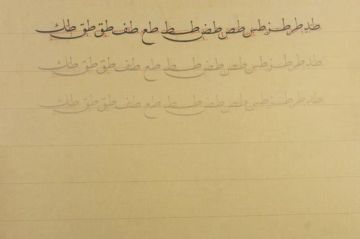 طد طر طز طس طص طض طط طع طف طق طق طك
طد طر طز طس طص طض طط طع طف طق طق طك
طد طر طز طس طص طض طط طع طف طق طق طك